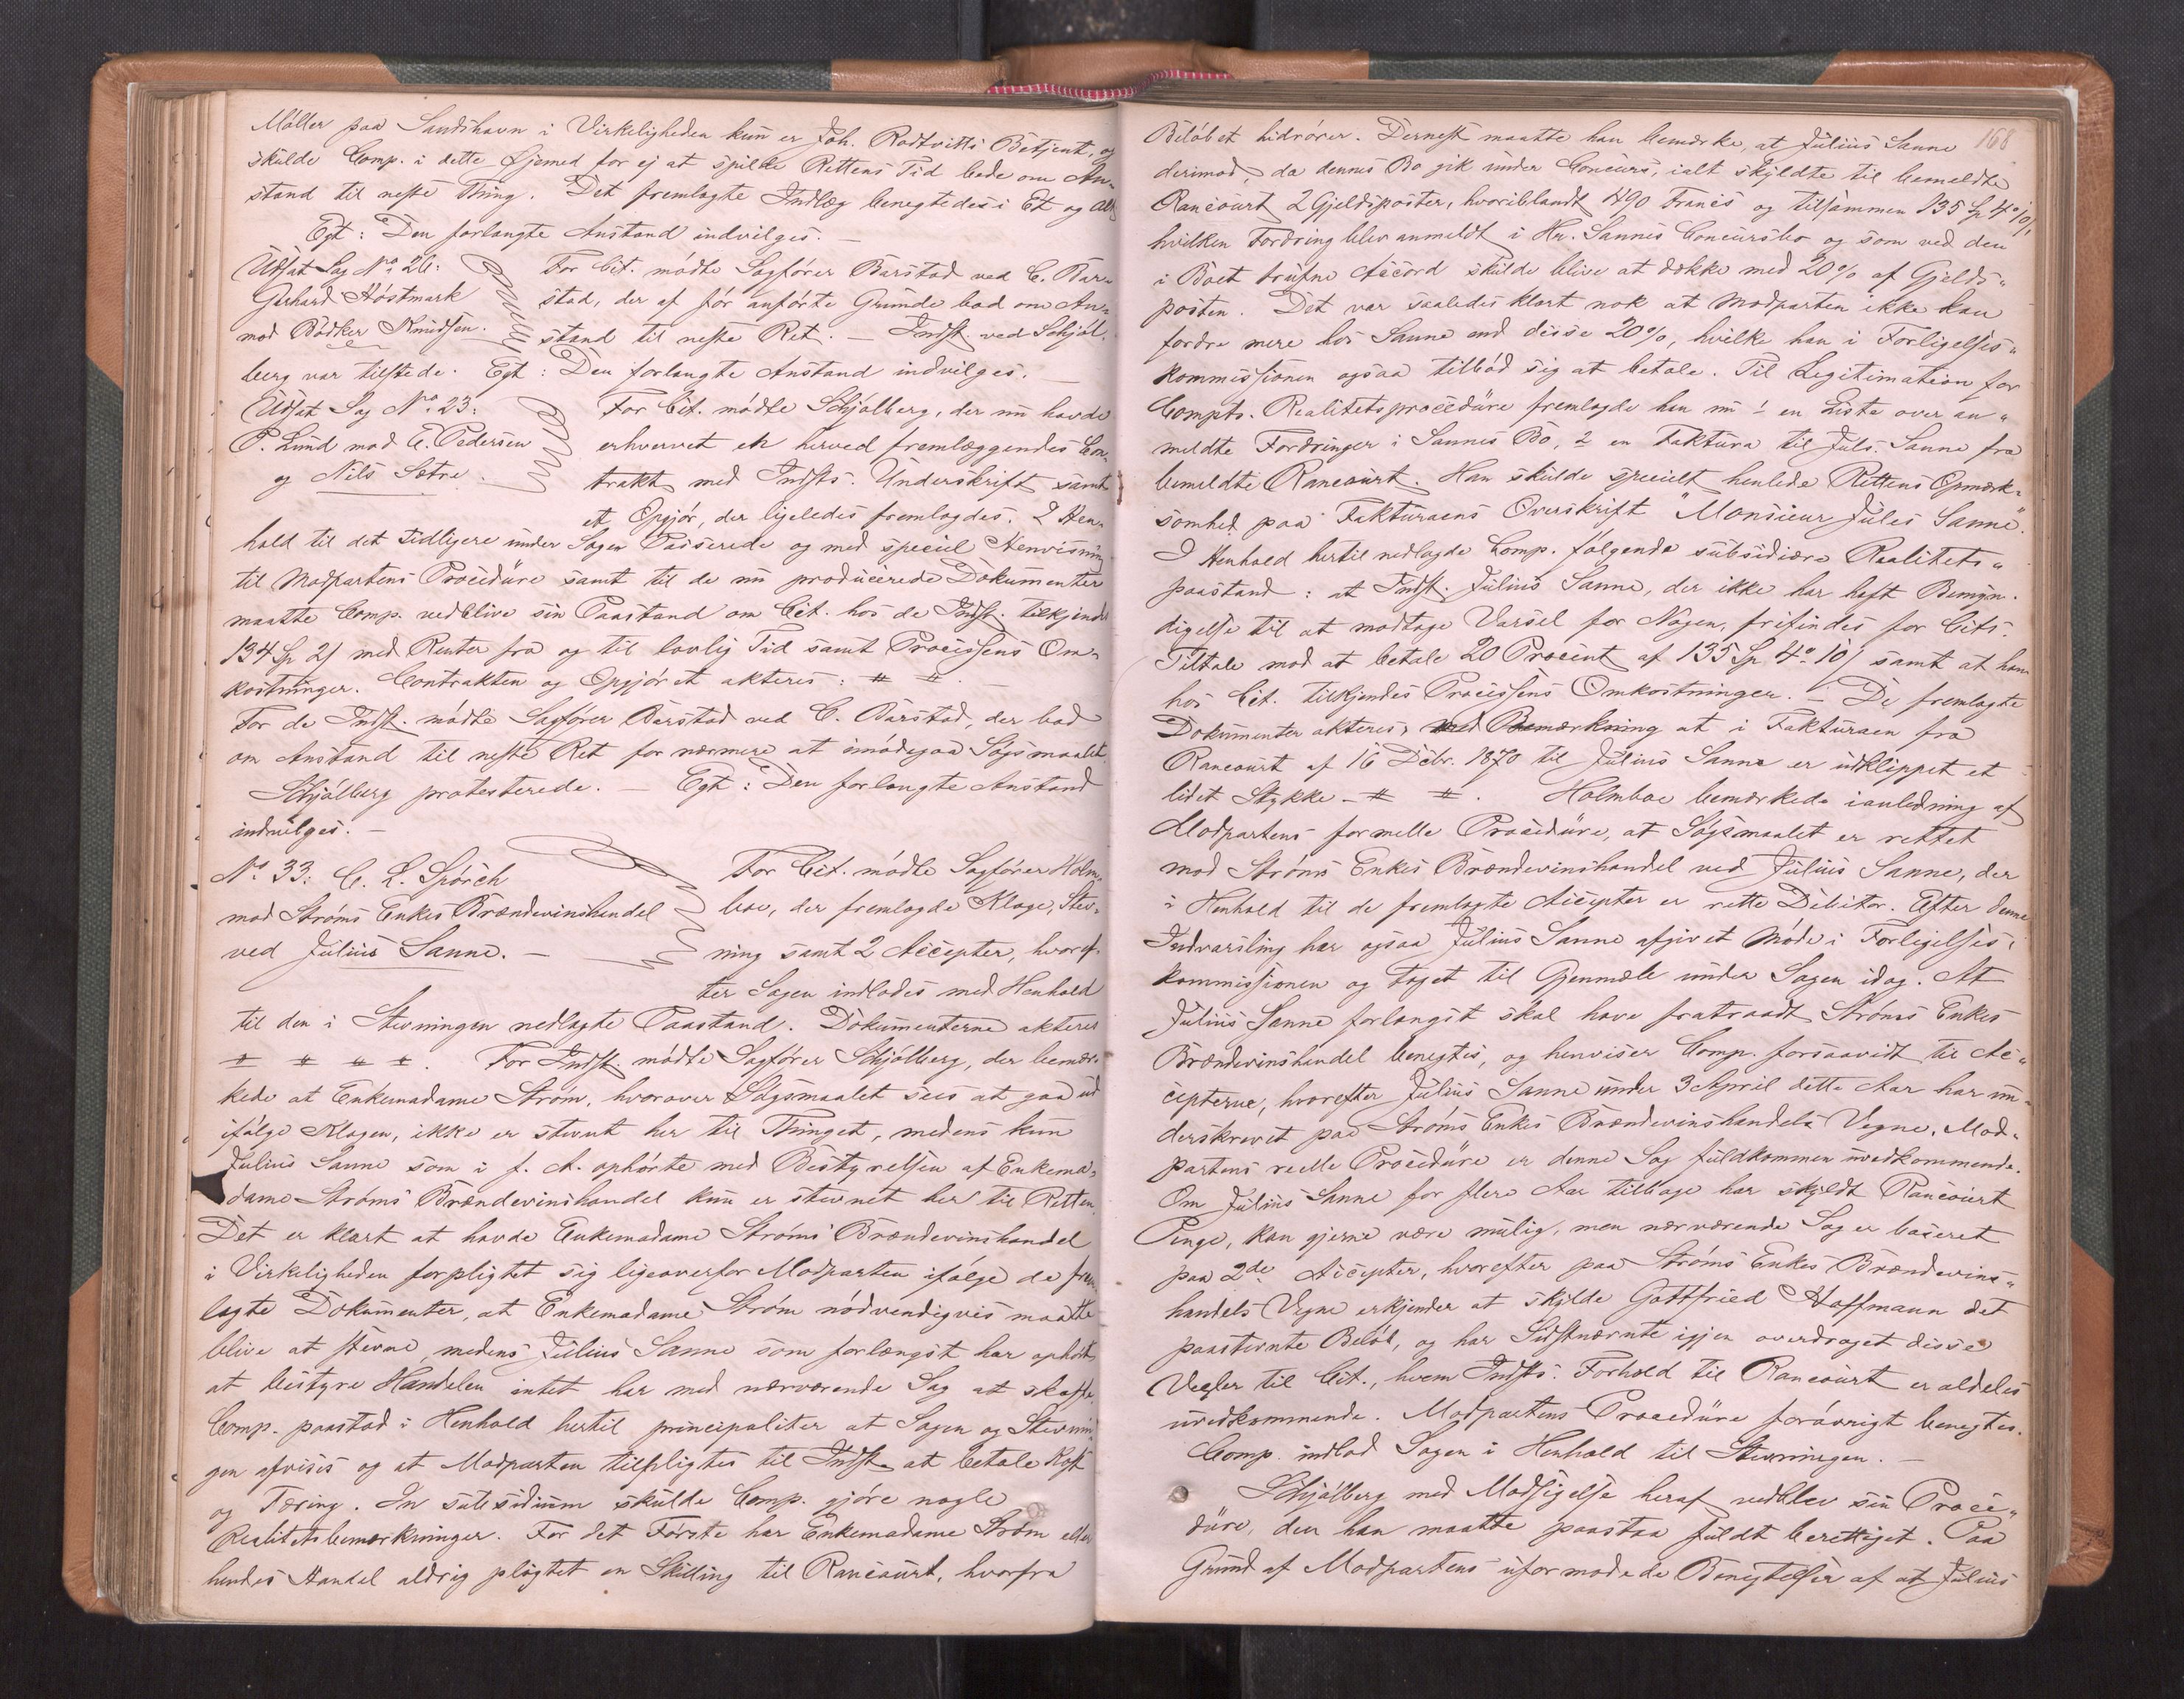 Møller paa Sandshavn i Virkeligheden kun er Joh. Rodtvitts Betjent, og
skulde Comp. i dette Øjemed for ej at spilde Rettens Tid bede om An-
stand til neste Thing. Det fremlagte Indlæg benegtedes i Et og Alt
Egt: Den forlangte Anstand indvilges. —
Udsat Sag No. 26:
Gerhard Høstmark
mod Bødker Knudsen.
For Cit. mødte Sagfører Barstad ved C. Bar-
stad, der af før anførte Grunde bad om An-
stand til neste Ret. — Indst. ved Schjøl-
berg var tilstede. Egt: Den forlangte Anstand indvilges. —
Udsat Sag No. 23:
P. Lund mod C. Pedersen
og Nils Sætre.
For Cit. mødte Schjølberg, der nu havde
erhvervet en herved fremlæggendes Con-
trakt med Indsts. Underskrift samt
et Opgjør, der ligeledes fremlagdes. I Hen-
hold til det tidligere under Sagen Passerede og med speciel Henvisning
til Modpartens Procedüre samt til de nu producerede Dokumenter
maatte Comp. vedblive sin Paastand om Cit. hos de Indst. tilkjendt
134 Sp 21 med Renter fra og til lovlig Tid samt Processens Om-
kostninger. Contrakten og Opgjøret akteres: # #.
For de Indst. mødte Sagfører Barstad ved C. Barstad, der bad
om Anstand til neste Ret for nærmere at imødegaa Søgsmaalet.
Schjølberg protesterede. — Egt: Den forlangte Anstand
indvilges. —
No. 33: C. L. Spørch
mod Strøms Enkes Brændevinshandel
ved Julius Sanne. —
For Cit. mødte Sagfører Holm-
boe, der fremlagde Klage, Stev-
ning samt 2 Accepter, hvoref-
ter Sagen indlodes med Henhold
til den i Stevningen nedlagte Paastand. Dokumenterne akteres
# # # #. For Indst. mødte Sagfører Schjølberg, der bemær-
kede at Enkemadame Strøm, hvorover Søgsmaalet sees at gaa ud
ifølge Klagen, ikke er stevnt her til Thinget, medens kun
Julius Sanne som i f. A. ophørte med Bestyrelsen af Enkema-
dame Strøms Brændevinshandel kun er stevnet her til Retten.
Det er klart at havde Enkemadame Strøms Brændevinshandel
i Virkeligheden forpligtet sig ligeoverfor Modparten ifølge de frem-
lagte Dokumenter, at Enkemadame Strøm nødvendigvis maatte
blive at stevne, medens Julius Sanne som forlængst har ophørt
at bestyre Handelen intet har med nærværende Sag at skaffe.
Comp. paastod i Henhold hertil principaliter at Sagen og Stevnin-
gen afvises og at Modparten tilpligtes til Indst. at betale Kost
og Tæring. In subsidium skulde Comp. gjøre nogle
Realitetsbemærkninger. For det Første har Enkemadame Strøm eller
hendes Handel aldrig pligtet en Skilling til Rancourt, hvorfra
168
Beløbet hidrører. Dernest maatte han bemærke, at Julius Sanne
derimod, da dennes Bo gik under Concurs, ialt skyldte til bemeldte
Rancourt 2 Gjeldsposter, hvoriblandt 490 Francs og tilsammen 135 Sp 4 10/,
hvilken Fordring blev anmeldt i Hr. Sannes Concursbo og som ved den
i Boet trufne Accord skulde blive at dække med 20% af Gjelds-
posten. Det var saaledes klart nok at Modparten ikke kan
fordre mere hos Sanne end disse 20%, hvilke han i Forligelses-
kommissionen ogsaa tilbød sig at betale. Til Legitimation for
Compts. Realitetsprocedüre fremlagde han nu 1 en Liste over an-
meldte Fordringer i Sannes Bo, 2 en Faktura til Juls. Sanne fra
bemeldte Rancourt. Han skulde specielt henlede Rettens Opmærk-
somhed paa Fakturaens Overskrift "Monsieur Jules Sanne".
I Henhold hertil nedlagde Comp. følgende subsidiære Realitets-
paastand: at Indst. Julius Sanne, der ikke har haft Bemyn-
digelse til at modtage Varsel for Nogen, frifindes for Cits.
Tiltale mod at betale 20 Procent af 135 Sp. 4 10/ samt at ham
hos Cit. tilkjendes Processens Omkostninger. — De fremlagte
Dokumenter akteres, med Bemærkning at i Fakturaen fra
Rancourt af 16 Decbr. 1870 til Julius Sanne er udklippet et
lidet Stykke — # #. Holmboe bemærkede i anledning af
Modpartens formelle Procedüre, at Søgsmaalet er rettet
mod Strøms Enkes Brændevinshandel ved Julius Sanne, der
i Henhold til de fremlagte Accepter er rette Debitor. Efter denne
Indvarsling har ogsaa Julius Sanne afgivet Møde i Forligelses-
kommissionen og taget til Gjenmæle under Sagen idag. At
Julius Sanne forlængst skal have fratraadt Strøms Enkes
Brændevinshandel benegtes, og henviser Comp. forsaavidt til Ac-
cepterne, hvorefter Julius Sanne under 3 April dette Aar har un-
derskrevet paa Strøms Enkes Brændevinshandels Vegne. Mod-
partens reelle Procedüre er denne Sag fuldkommen uvedkommende.
Om Julius Sanne for flere Aar tilbage har skyldt Rancourt
Penge, kan gjerne være mulig, men nærværende Sag er baseret
paa 2de Accepter, hvorefter paa Strøms Enkes Brændevins-
handels Vegne erkjender at skylde Gottfried Hoffmann det
paastevnte Beløb, og har Sidstnævnte igjen overdraget disse
Vexler til Cit., hvem Indsts. Forhold til Rancourt er aldeles
uvedkommende. Modpartens Procedüre forøvrigt benegtes.
Comp. indlod Sagen i Henhold til Stevningen. —
Schjølberg med Modsigelse heraf vedblev sin Proce-
düre, den han maatte paastaa fuldt berettiget. Paa
Grund af Modpartens uformodede Benegtelser af at Julius